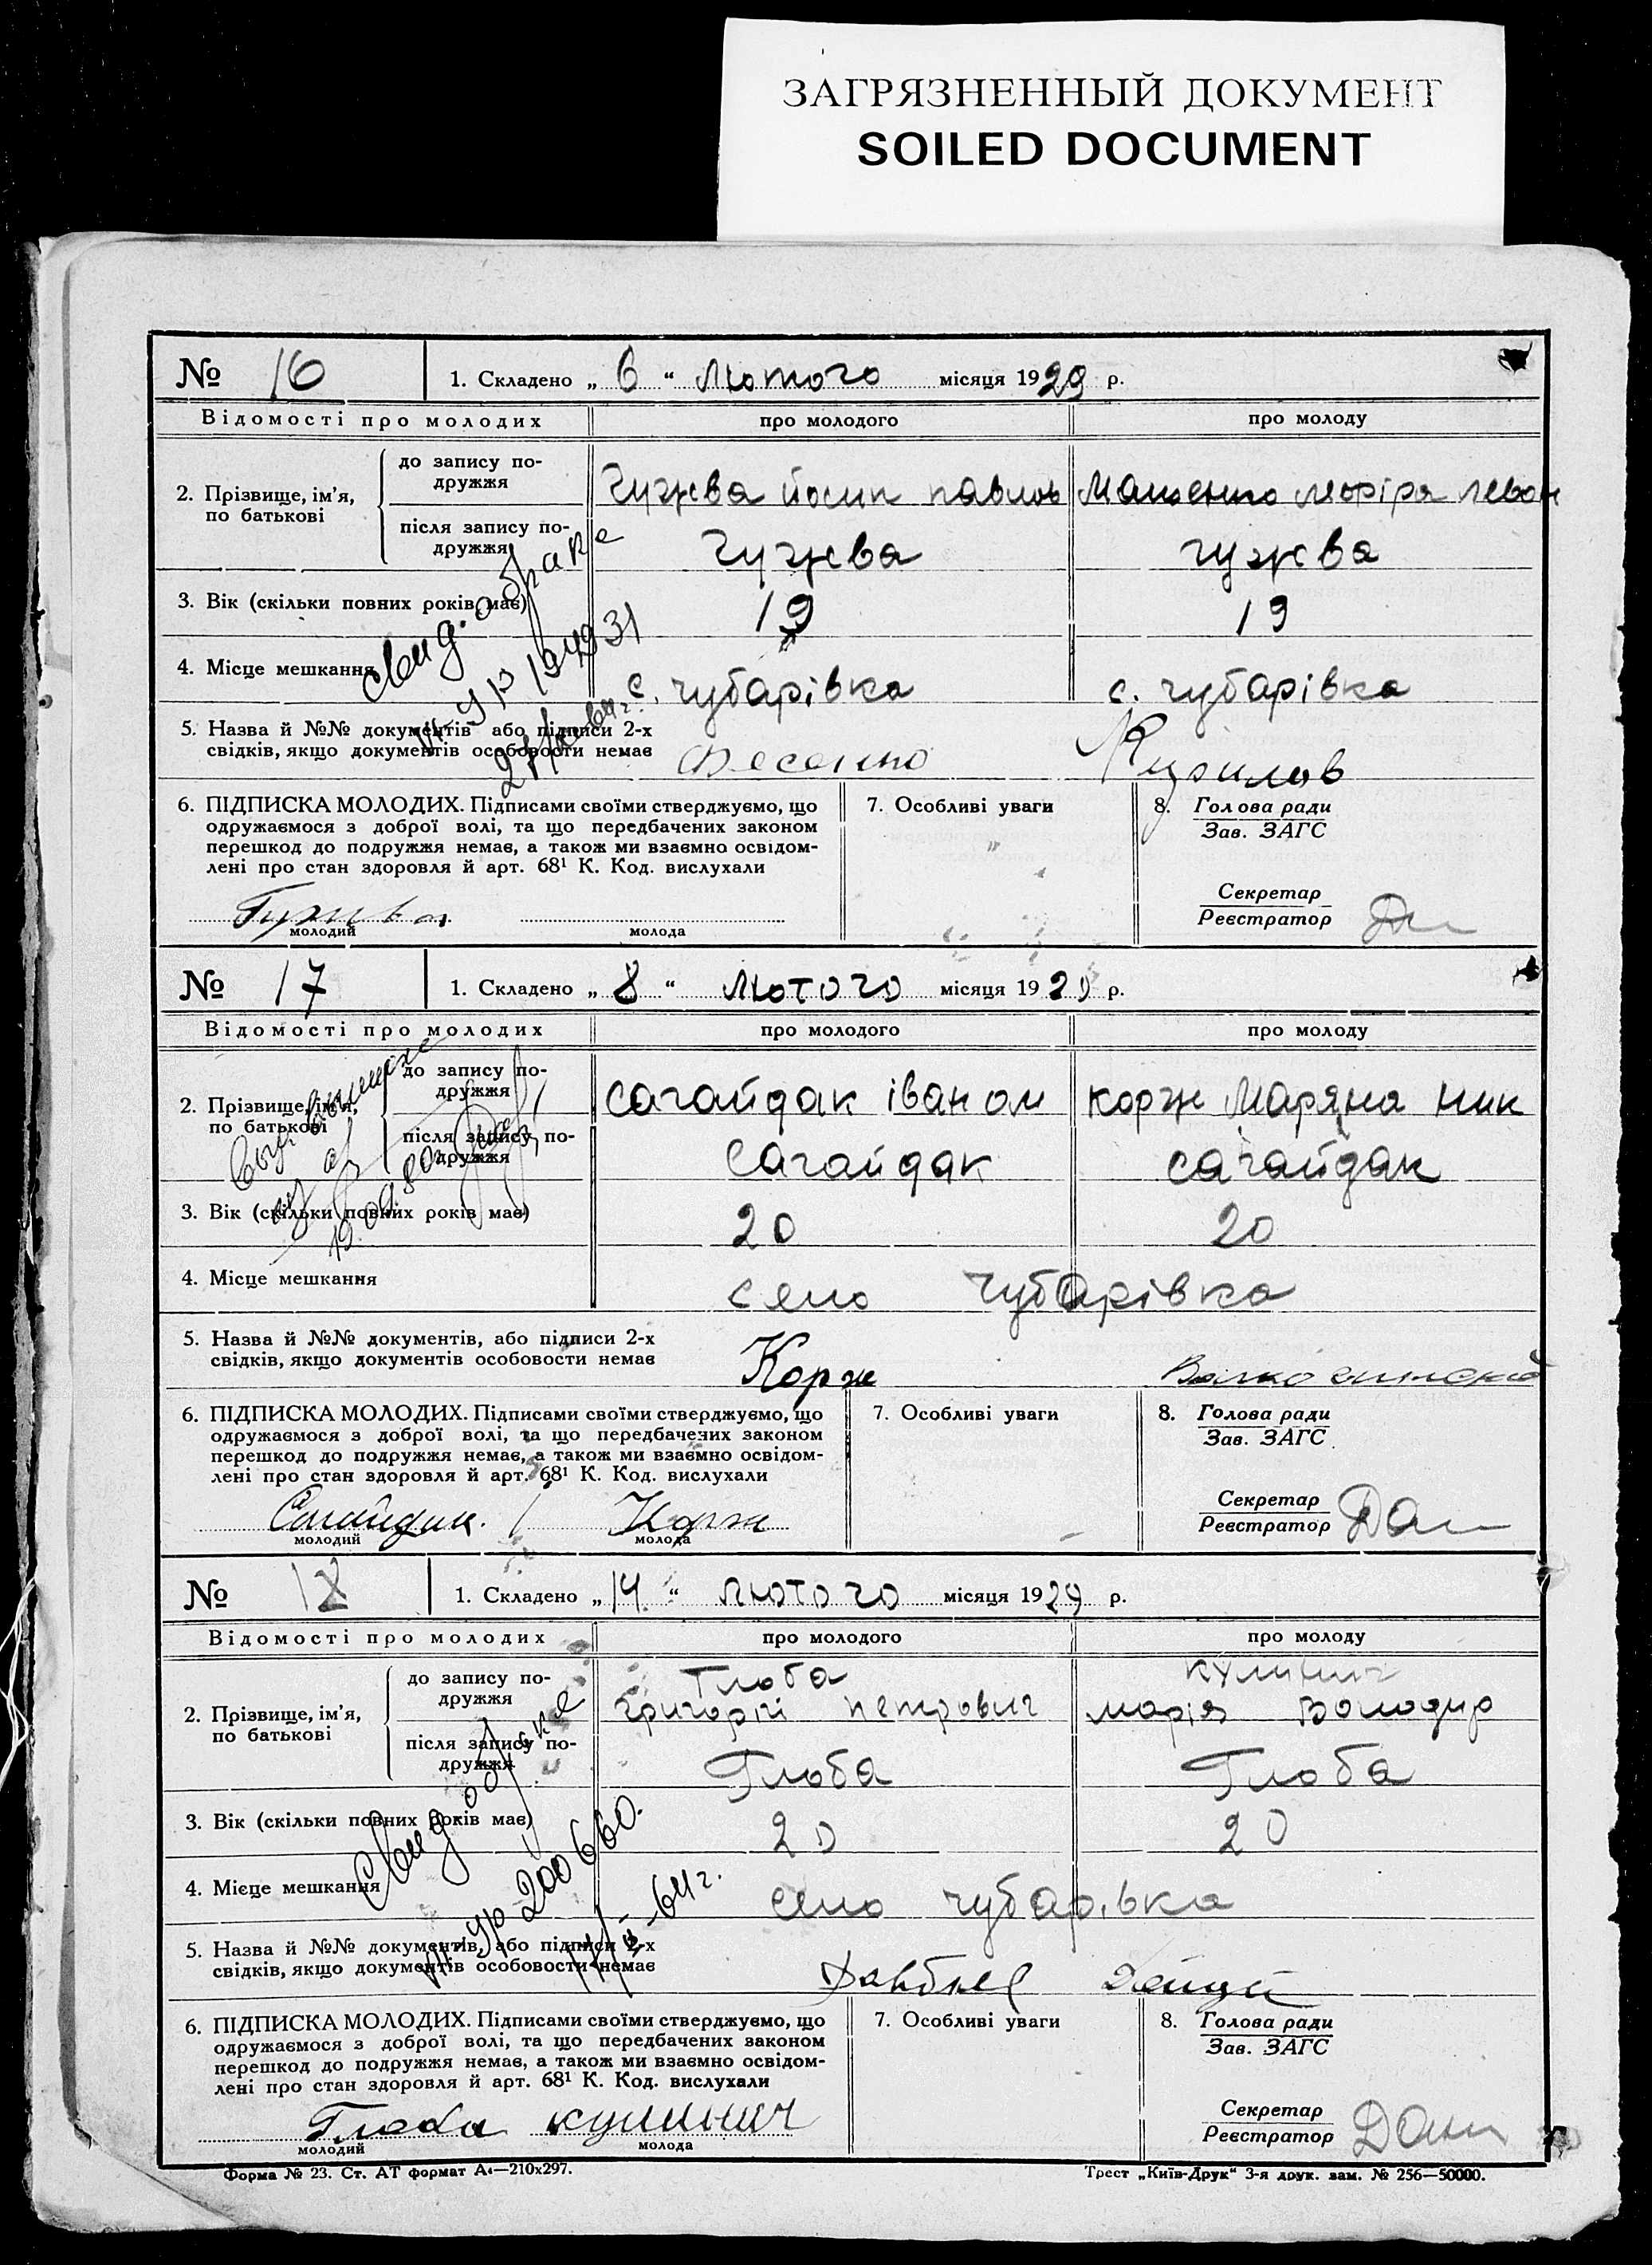 ЗАГРЯЗНЕННЫЙ ДОКУМЕНТ
SOILED DOCUMENT
№ 16 1. Складено „ 6 “ Лютого місяця 1929 р.
Відомості про молодих про молодого про молоду
2. Прізвище, ім'я, по батькові
до запису по-
дружжя
Чужва йосип павлов
після запису по-
дружжя
Чужва чужва
3. Вік (скільки повних років має) 19 19
4. Місце мешкання с. чубарівка с. чубарівка
Свид. о браке
27
5. Назва й №№ документів або підписи 2-х
свідків, якщо документів особовости немає
6. ПІДПИСКА МОЛОДИХ. Підписами своїми стверджуємо, що
одружаємося з доброї волі, та що передбачених законом
перешкод до подружжя немає, а також ми взаємно освідом-
лені про стан здоровля й арт. 68¹ К. Код. вислухали
молодий молода
7. Особливі уваги
8. Голова ради
Зав. ЗАГС
Секретар
Реєстратор
№ 17 1. Складено „ 8 “ лютого місяця 19 р.
Відомості про молодих про молодого про молоду
2. Прізвище, ім'я,
по батькові
до запису по-
дружжя
Сагайдак іван ом корж Маряна ник
після запису по-
дружжя
Сагайдак сагайдак
3. Вік (скільки повних років має) 20 20
4. Місце мешкання село чубарівка
5. Назва й №№ документів, або підписи 2-х
свідків, якщо документів особовости немає
Корж
6. ПІДПИСКА МОЛОДИХ. Підписами своїми стверджуємо, що
одружаємося з доброї волі, та що передбачених законом
перешкод до подружжя немає, а також ми взаємно освідом-
лені про стан здоровля й арт. 68¹ К. Код. вислухали
Сагайдак. Корж
молодий молода
7. Особливі уваги
8. Голова ради
Зав. ЗАГС
Секретар
Реєстратор
№ 18 1. Складено „ 14 “ лютого місяця 1929 р.
Відомості про молодих про молодого про молоду
2. Прізвище, ім'я,
по батькові
до запису по-
дружжя
Глоба кулинич
григорій петрович марія Володир
після запису по-
дружжя
Глоба Глоба
3. Вік (скільки повних років має) 20 20
4. Місце мешкання село чубарівка
Свид. о браке
200660.
64 г.
5. Назва й №№ документів, або підписи 2-х
свідків, якщо документів особовости немає
6. ПІДПИСКА МОЛОДИХ. Підписами своїми стверджуємо, що
одружаємося з доброї волі, та що передбачених законом
перешкод до подружжя немає, а також ми взаємно освідом-
лені про стан здоровля й арт. 68¹ К. Код. вислухали
Глоба кулинич
молодий молода
7. Особливі уваги
8. Голова ради
Зав. ЗАГС
Секретар
Реєстратор
Форма № 23. Ст. АТ формат А₄—210х297.
Трест „Київ-Друк“ 3-я друк. зам. № 256—50000.